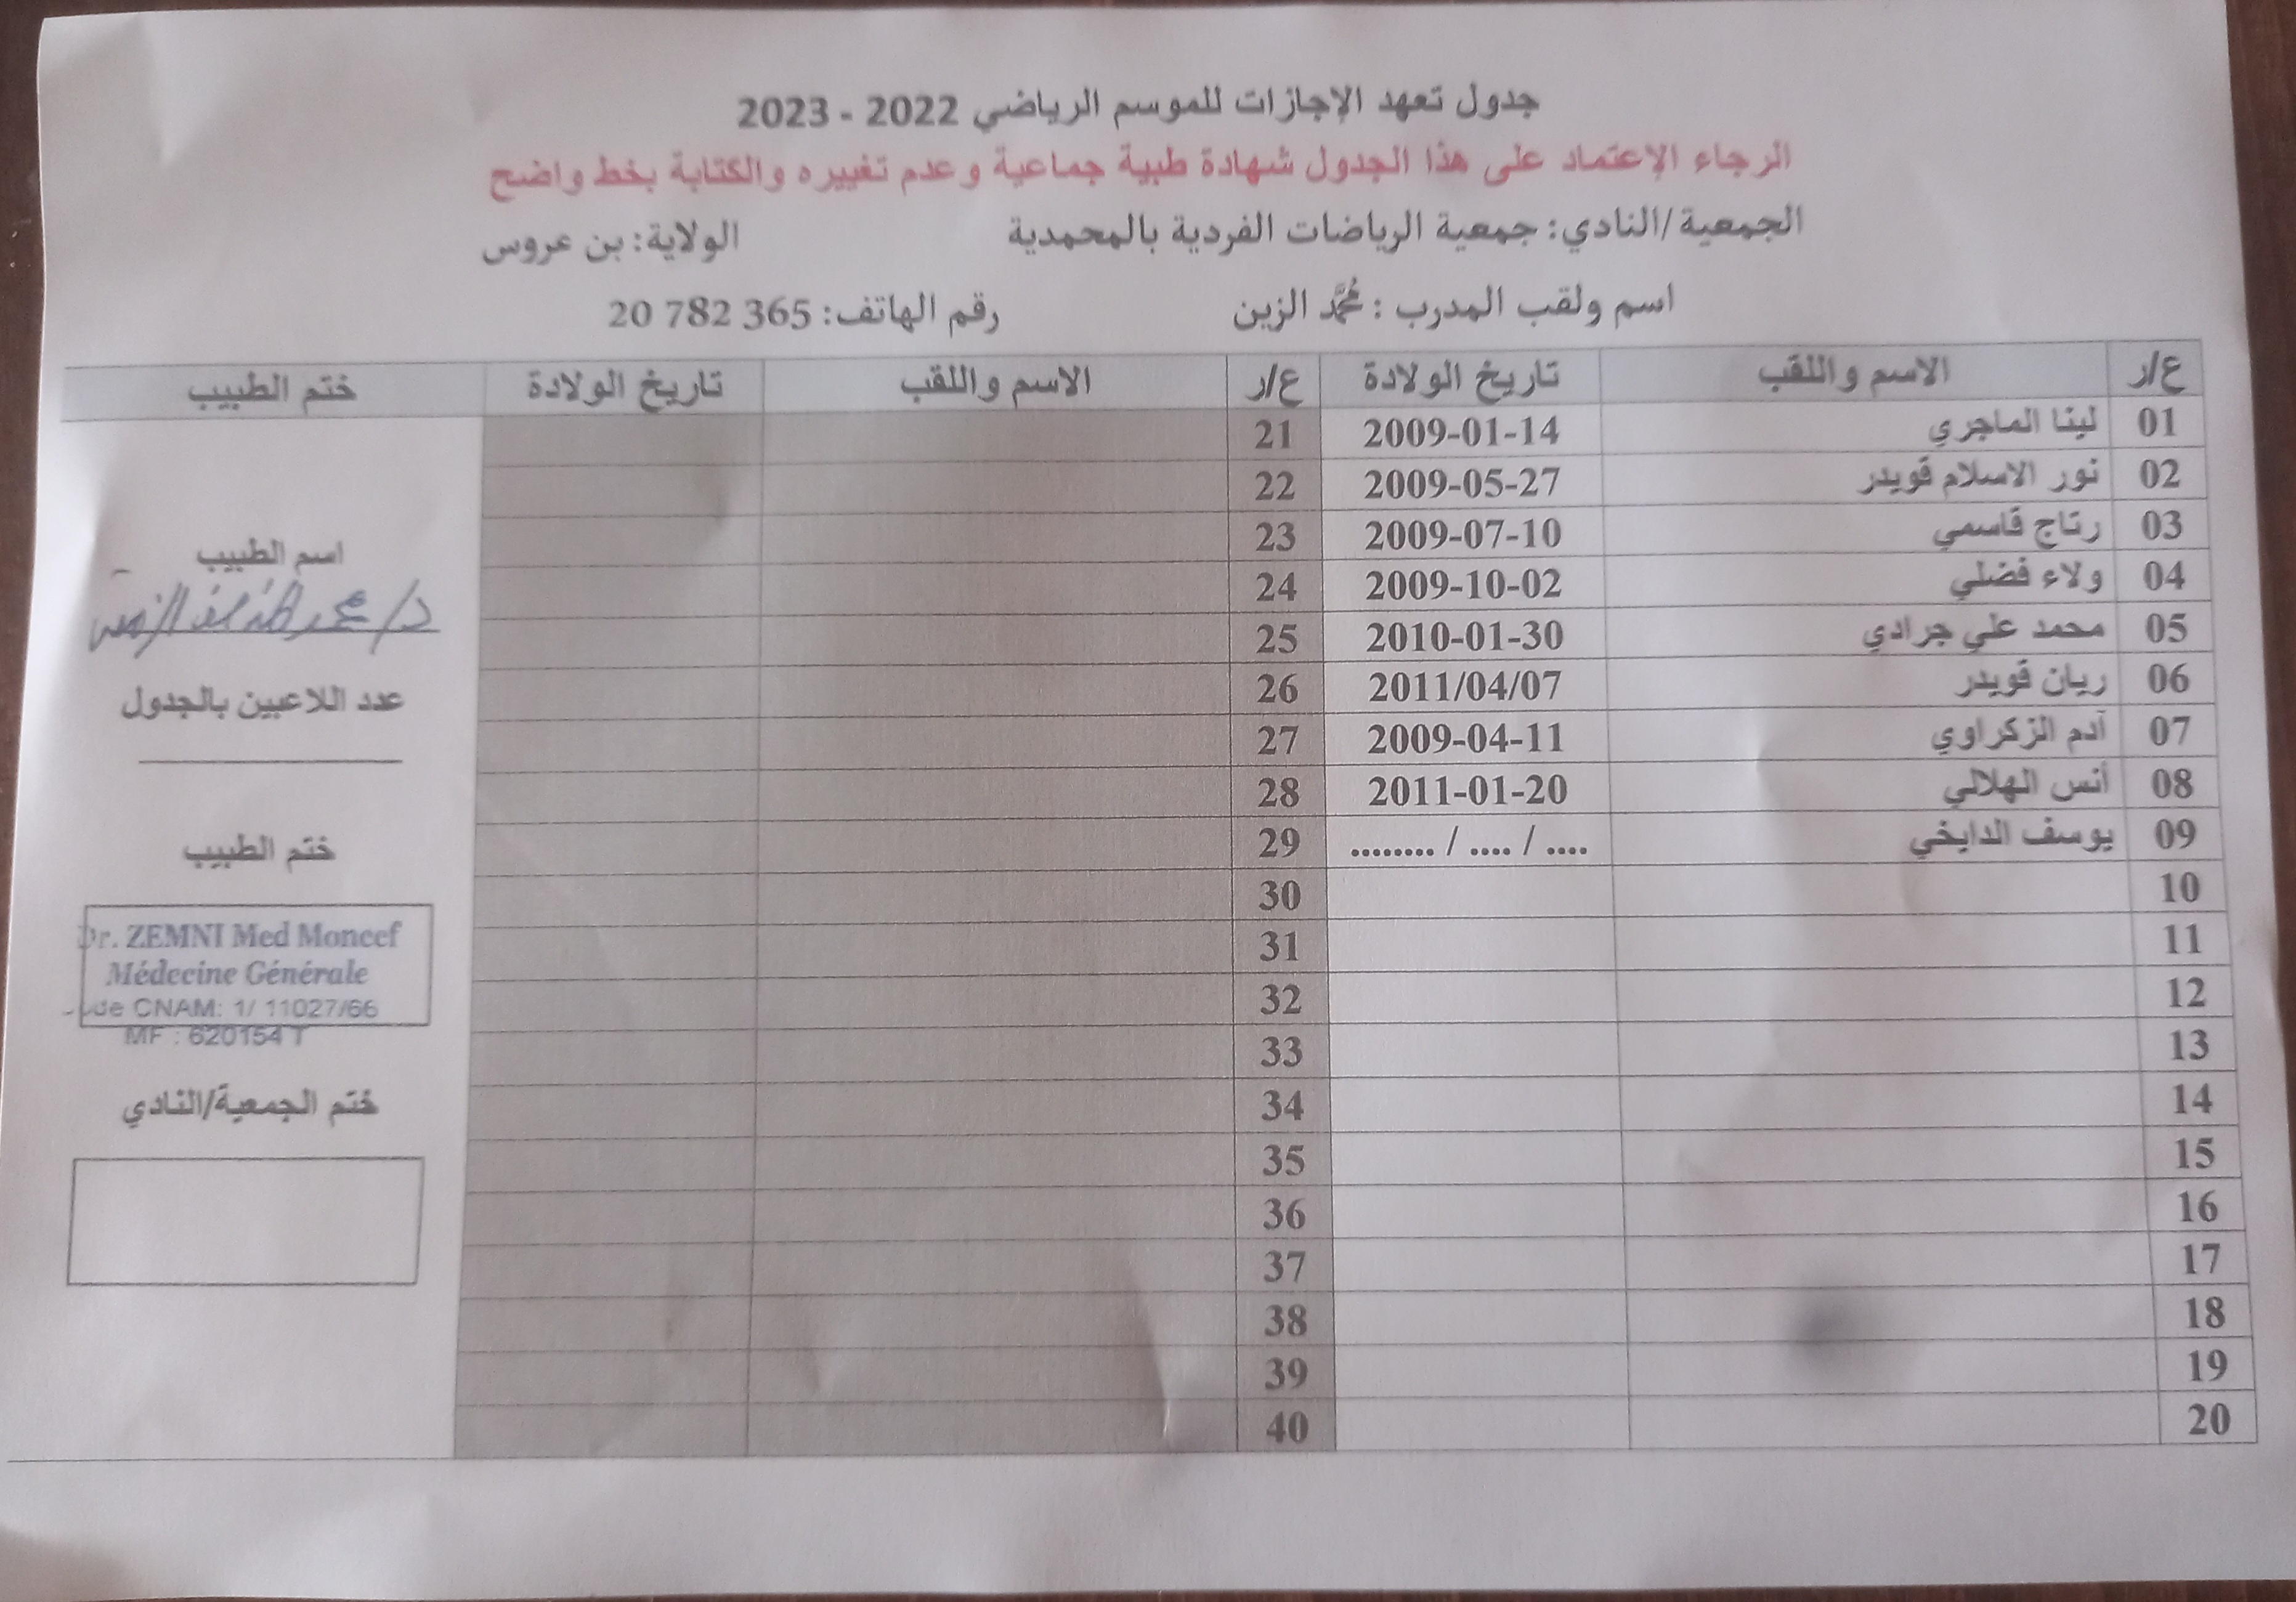 جدول تعهد الإجازات للموسم الرياضي 2022 - 2023
الرجاء الإعتماد على هذا الجدول شهادة طبية جماعية وعدم تغييره والكتابة بخط واضح
الجمعية/النادي: جمعية الرياضات الفردية بالمحمدية الولاية: بن عروس
اسم ولقب المدرب : مُحمَّد الزين رقم الهاتف: 365 782 20
ع/ر الاسم واللقب تاريخ الولادة ع/ر الاسم واللقب تاريخ الولادة ختم الطبيب
01 لينا الماجري 2009-01-14 21
02 نور الاسلام قويدر 2009-05-27 22
03 رتاج قاسمي 2009-07-10 23
04 ولاء فضلي 2009-10-02 24
05 محمد علي جرادي 2010-01-30 25
06 ريان قويدر 2011/04/07 26
07 آدم الزكراوي 2009-04-11 27
08 أنس الهلالي 2011-01-20 28
09 يوسف الدايخي ........ / .... / .... 29
10 30
11 31
12 32
13 33
14 34
15 35
16 36
17 37
18 38
19 39
20 40
اسم الطبيب
عدد اللاعبين بالجدول
ختم الطبيب
Dr. ZEMNI Med Moncef
Médecine Générale
de CNAM: 1/ 11027/66
MF : 620154 T
ختم الجمعية/النادي